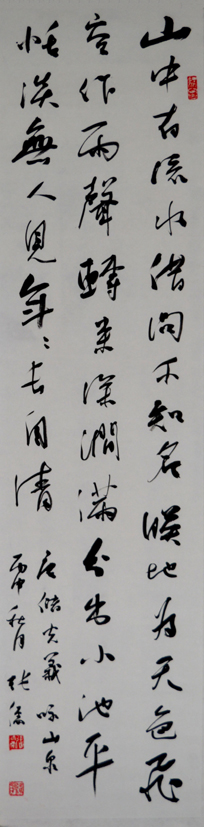 山中有流水借問不知名暎地為天色飛
空作雨聲轉來深澗滿分出小池平
恬淡無人見年〻長自清
唐儲光羲咏山泉
丙申秋月